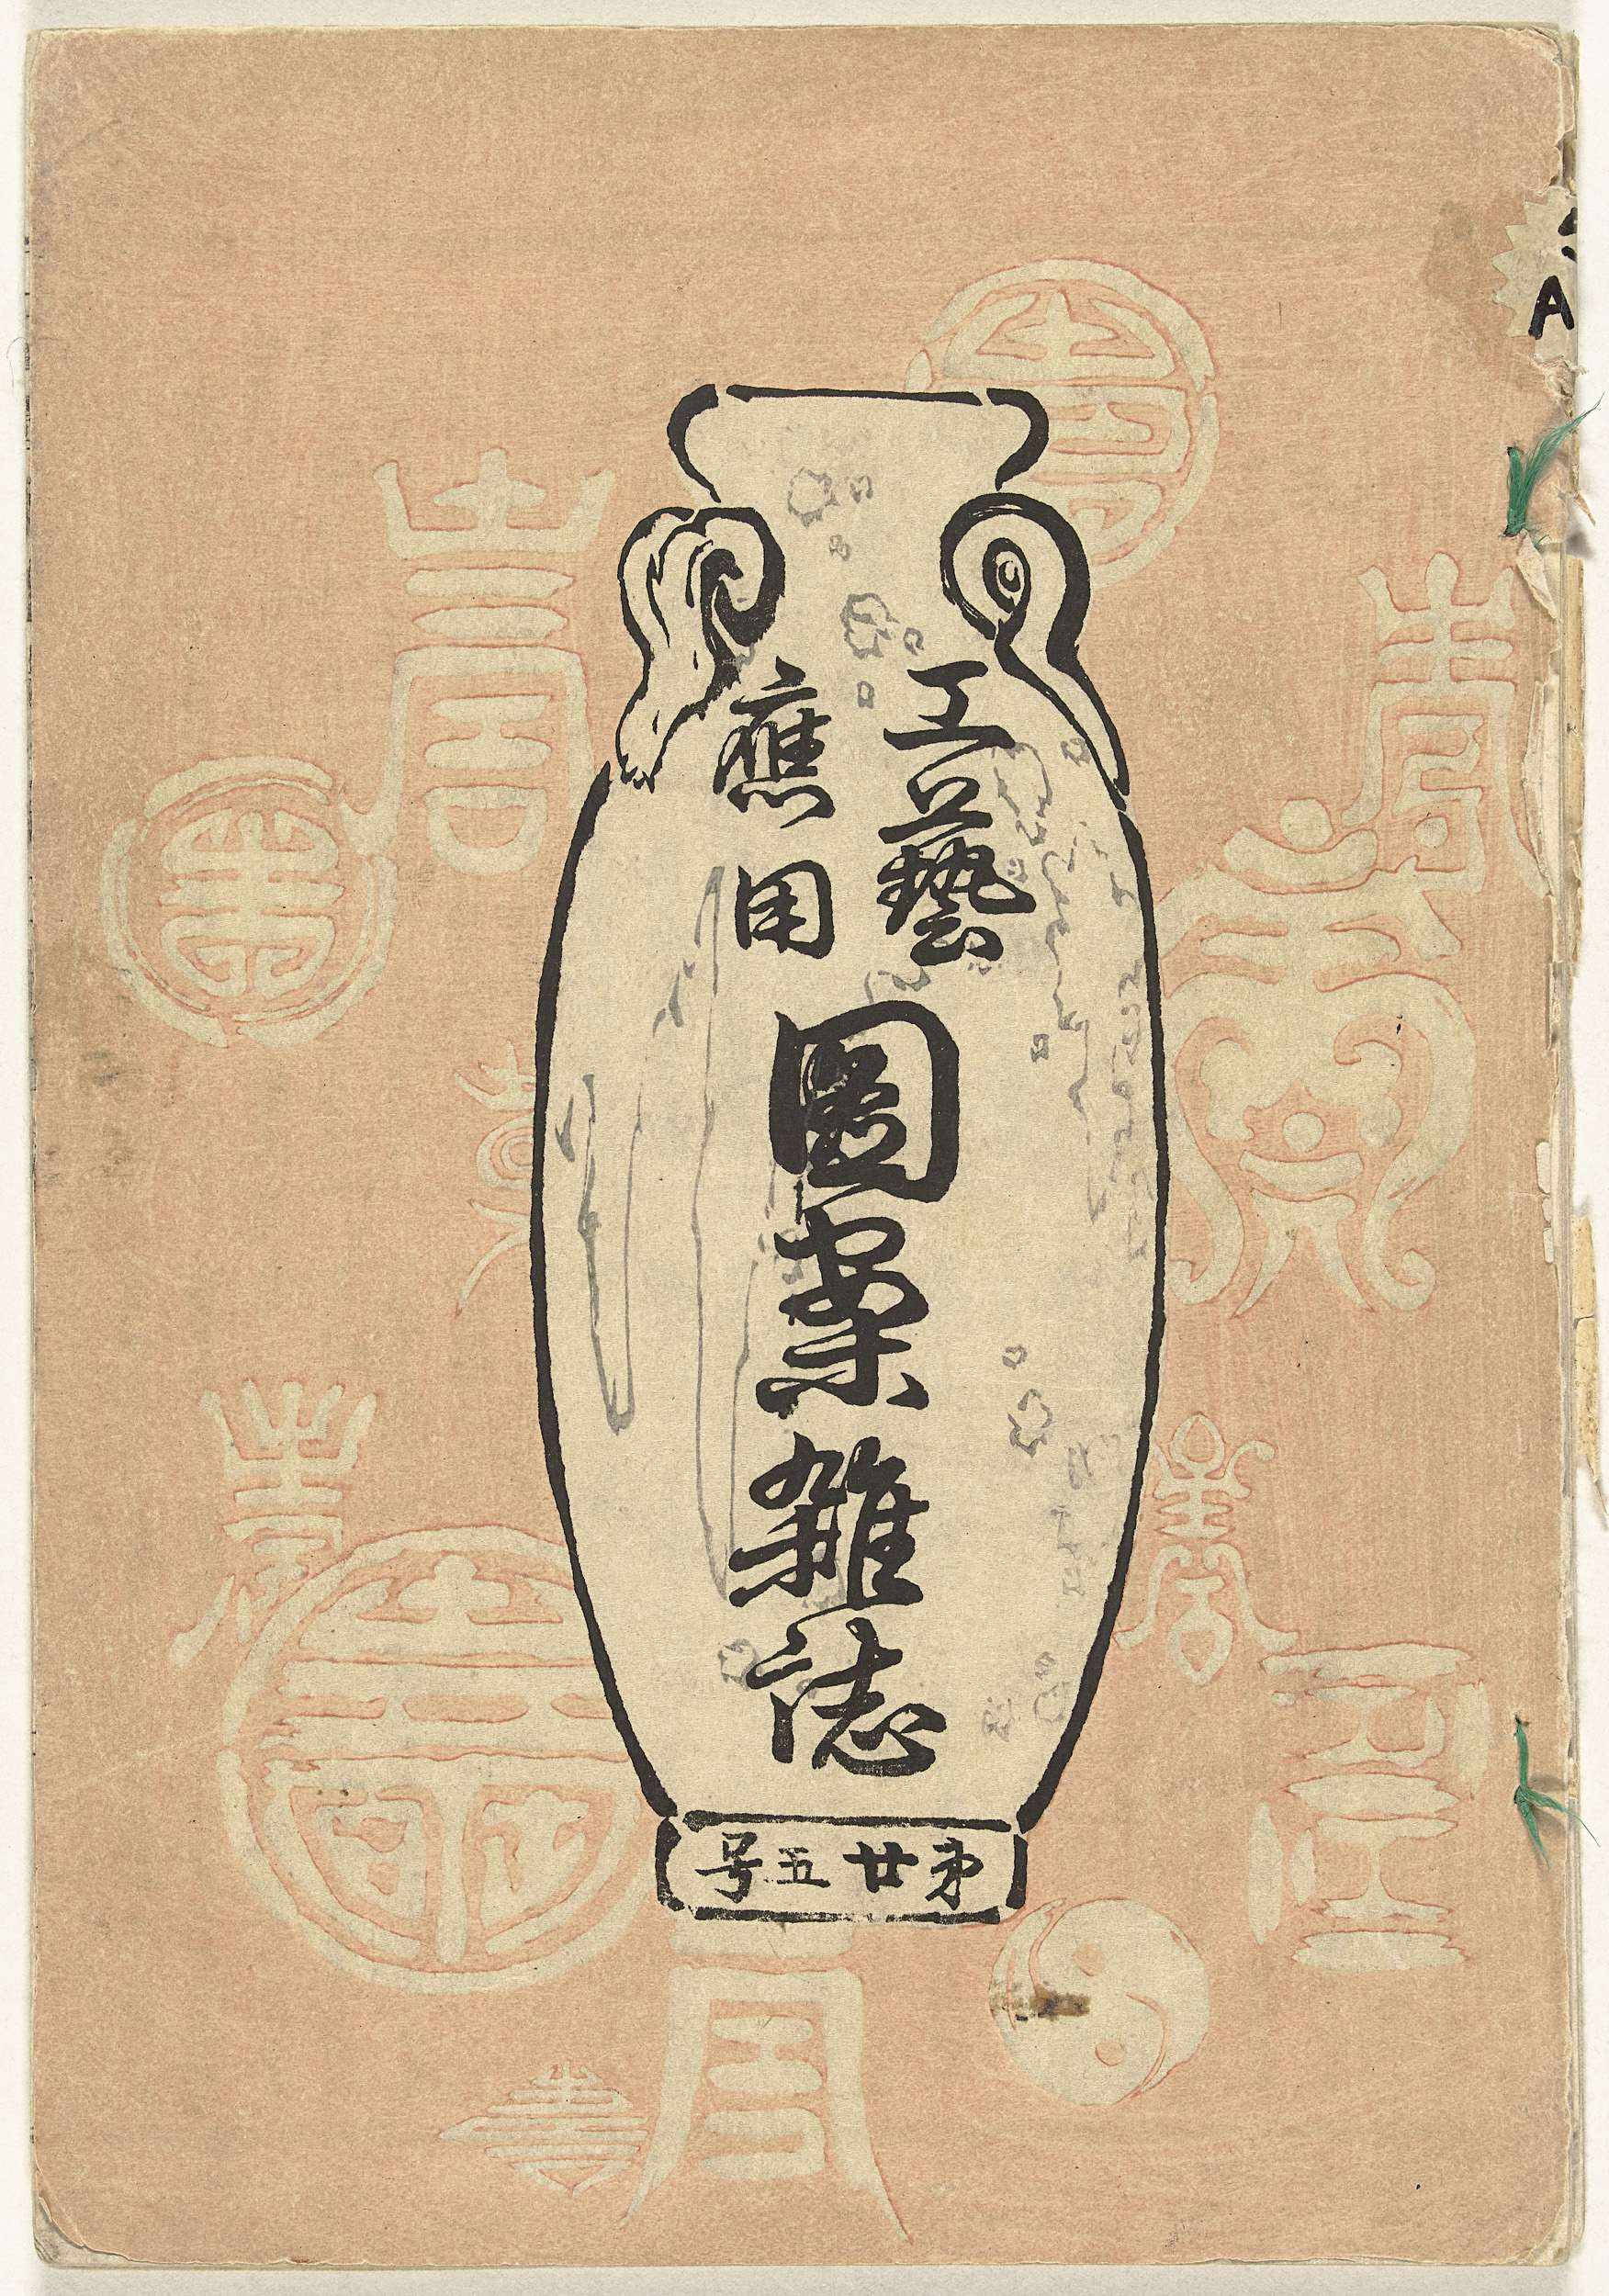 工藝
應用
圖案雑誌
苐廿五号
A